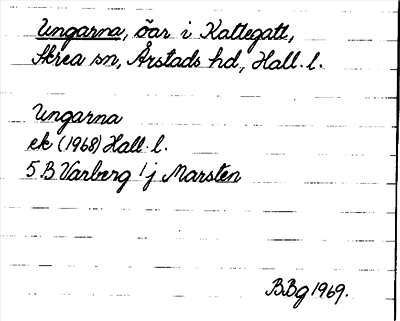 Ungarna, öar i Kattegatt,
Skrea sn, Årstads hd, Hall. l.
Ungarna
ek (1968) Hall. l.
5 B Varberg 1j Marsten
BBg 1969.